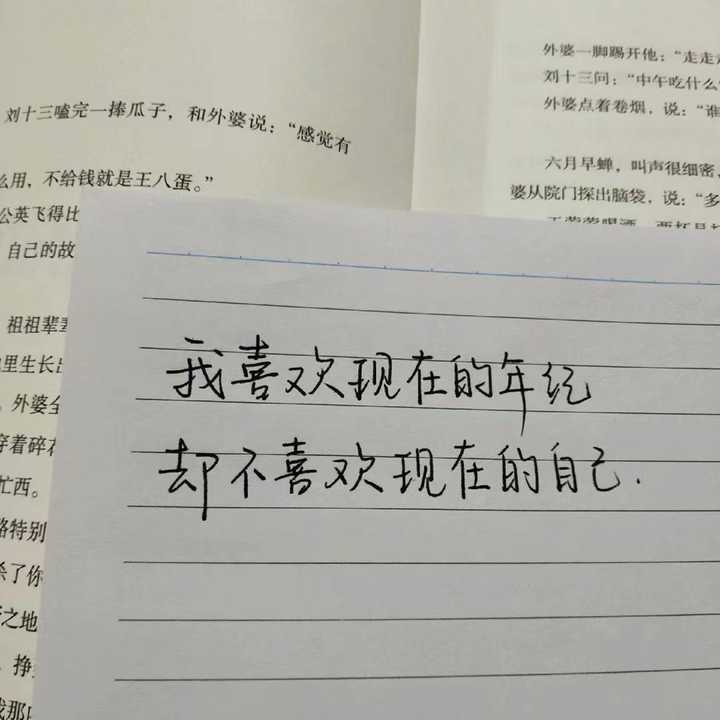 刘十三嗑完一捧瓜子，和外婆说：“感觉有
么用，不给钱就是王八蛋。”
公英飞得比
自己的故
祖祖辈辈
里生长出
外婆全
穿着碎花
忙西。
路特别
杀了你
之地
挣
我那
外婆一脚踢开他：“走走走
刘十三问：“中午吃什么
外婆点着卷烟，说：“谁
六月早蝉，叫声很细密，
婆从院门探出脑袋，说：“多
我喜欢现在的年纪
却不喜欢现在的自己.